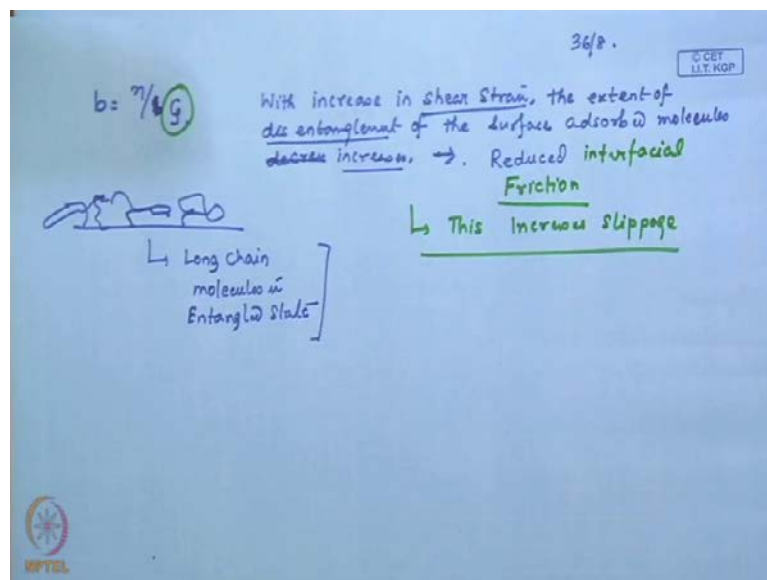 36/8.
© CET
I.I.T. KGP
b = η/G
With increase in Shear Strain, the extent of
dis entanglement of the Surface adsorbed molecules
increases, →. Reduced interfacial
Friction
↳ This Increases Slippage
↳ Long Chain
molecules in
Entangled State
NPTEL